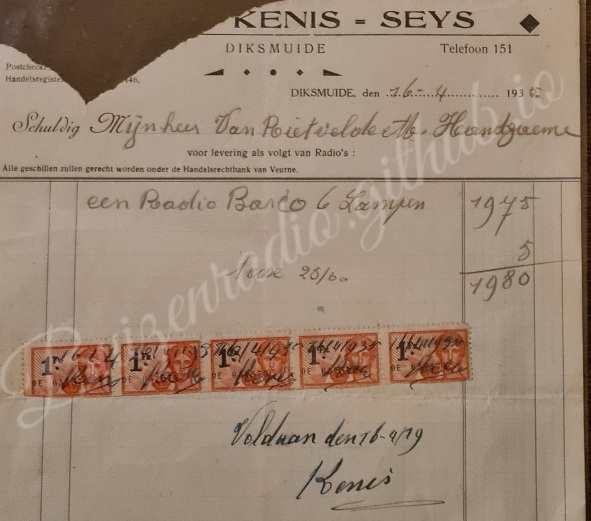 KENIS = SEYS
DIKSMUIDE
Telefoon 151
Postcheck
Handelsregister 146.
DIKSMUIDE, den 16-4 193
Schuldig Mijnheer Van Rietvelde Handzaeme
voor levering als volgt van Radio's :
Alle geschillen zullen gerecht worden onder de Handelsrechtbank van Veurne.
een Radio Barco 6 Lampen 1975
5
Taxe 25/00
1980
1 1 1 1 1
Voldaan den 16-4/
Kenis
Buizenradio.github.io